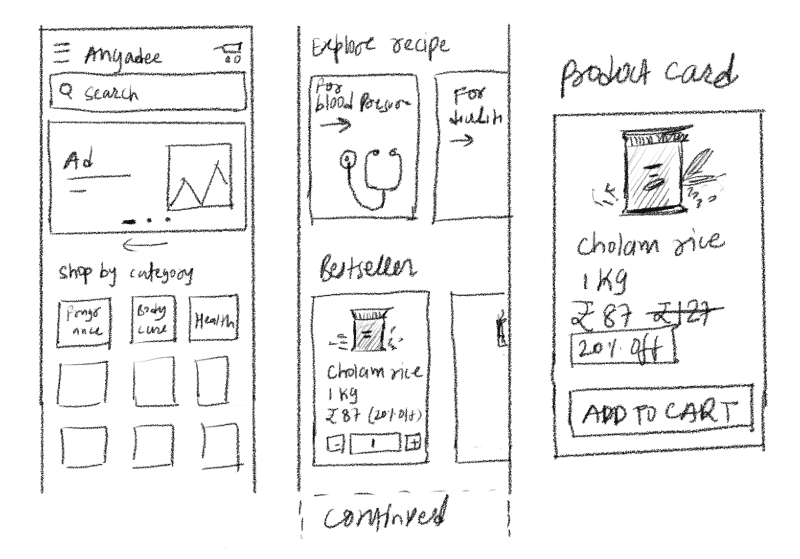 Anyadee
search
Ad
shop by category
Body
cure
Health
Explore recipe
For
blood Pressure
For
Bestseller
Cholam rice
1 kg
₹87 (20% off)
-
1
+
continued
Product card
Cholam rice
1 kg
₹87 ₹127
20% off
ADD TO CART